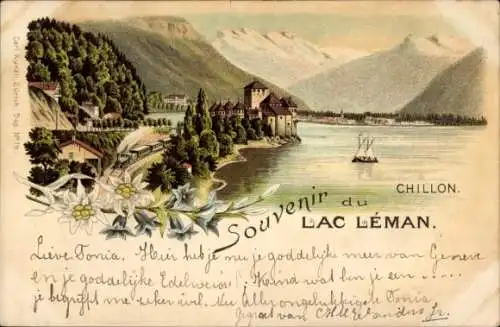 Carl Künzli, Zürich Dep. No
CHILLON.
Souvenir du
LAC LÉMAN.
Lieve Tonia. Hier heb je nu je goddelijke meer van Geneve
en je goddelijke Edelweiss! Kind wat ben je een .....
je begrijpt me zeker wel. Nu Allerongelukkigste Tonia
gegroet van
Jr.